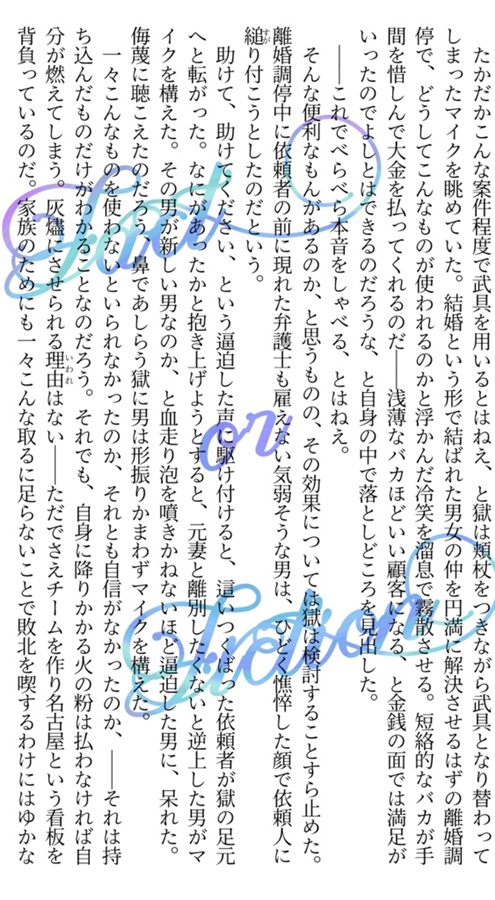 たかだかこんな案件程度で武具を用いるとはねえ、と獄は頬杖をつきながら武具となり替わって
しまったマイクを眺めていた。結婚という形で結ばれた男女の仲を円満に解決させるはずの離婚調
停で、どうしてこんなものが使われるのかと浮かんだ冷笑を溜息で霧散させる。短絡的なバカが手
間を惜しんで大金を払ってくれるのだ――浅薄なバカほどいい顧客になる、と金銭の面では満足が
いったのでよしとはできるのだろうな、と自身の中で落としどころを見出した。
――これでべらべら本音をしゃべる、とはねえ。
そんな便利なもんがあるのか、と思うものの、その効果については獄は検討することすら止めた。
離婚調停中に依頼者の前に現れた弁護士も雇えない気弱そうな男は、ひどく憔悴した顔で依頼人に
縋り付こうとしたのだという。
すが
助けて、助けてください、という逼迫した声に駆け付けると、這いつくばった依頼者が獄の足元
へと転がった。なにがあったかと抱き上げようとすると、元妻と離別したくないと逆上した男がマ
イクを構えた。その男が新しい男なのか、と血走り泡を噴きかねないほど逼迫した男に、呆れた。
侮蔑に聴こえたのだろう、鼻であしらう獄に男は形振りかまわずマイクを構えた。
一々こんなものを使わないといられなかったのか、それとも自信がなかったのか、――それは持
ち込んだものだけがわかることなのだろう。それでも、自身に降りかかる火の粉は払わなければ自
分が燃えてしまう。灰燼にさせられる理由はない――ただでさえチームを作り名古屋という看板を
いわれ
背負っているのだ。家族のためにも一々こんな取るに足らないことで敗北を喫するわけにはゆかな
Fact
or
Fiction